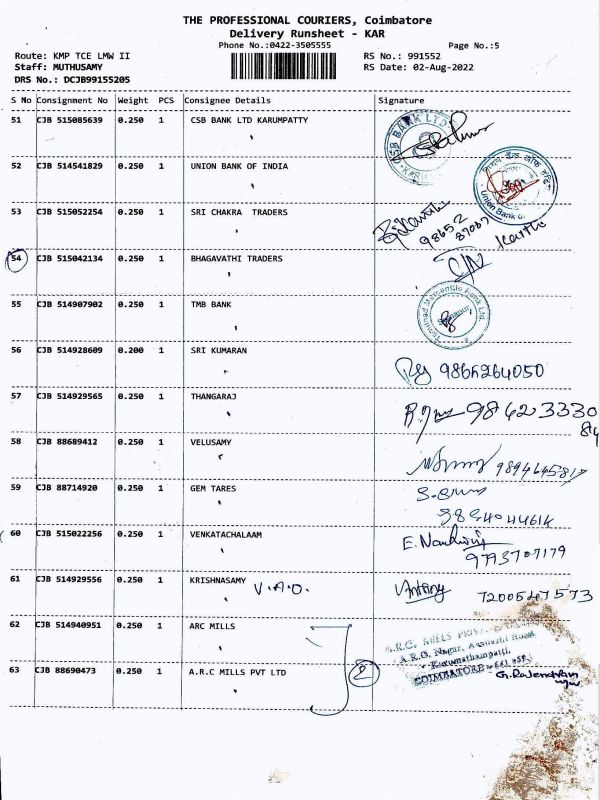 THE PROFESSIONAL COURIERS, Coimbatore
Delivery Runsheet - KAR
Phone No.:0422-3505555
Page No.:5
Route: KMP TCE LMW II
RS No.: 991552
Staff: MUTHUSAMY
RS Date: 02-Aug-2022
DRS No.: DCJB99155205
S No Consignment No Weight PCS Consignee Details Signature
51 CJB 515085639 0.250 1 CSB BANK LTD KARUMPATTY
CSB BANK LTD
52 CJB 514541829 0.250 1 UNION BANK OF INDIA
Union Bank
53 CJB 515052254 0.250 1 SRI CHAKRA TRADERS
98652
87007
54 CJB 515042134 0.250 1 BHAGAVATHI TRADERS
55 CJB 514907902 0.250 1 TMB BANK
Tamilnad Mercantile Bank Ltd.
56 CJB 514928609 0.200 1 SRI KUMARAN
9865264050
57 CJB 514929565 0.250 1 THANGARAJ
98423330
84
58 CJB 88689412 0.250 1 VELUSAMY
59 CJB 88714920 0.250 1 GEM TARES
60 CJB 515022256 0.250 1 VENKATACHALAAM
61 CJB 514929556 0.250 1 KRISHNASAMY V.A.O. Antony 7200547573
62 CJB 514940951 0.250 1 ARC MILLS
A.R.G. Nagar, Avanashi Road
Karumathampatti,
COIMBATORE - 641 659
63 CJB 88690473 0.250 1 A.R.C MILLS PVT LTD 2 G.Rajendran